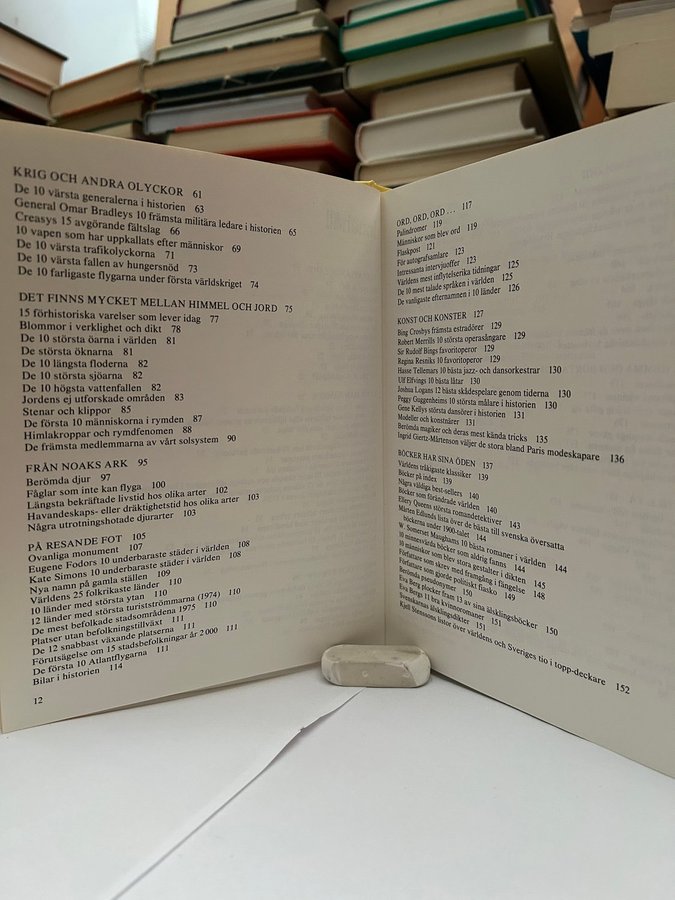 KRIG OCH ANDRA OLYCKOR 61
De 10 värsta generalerna i historien 63
General Omar Bradleys 10 främsta militära ledare i historien 65
Creasys 15 avgörande fältslag 66
10 vapen som har uppkallats efter människor 69
De 10 värsta trafikolyckorna 71
De 10 värsta fallen av hungersnöd 73
De 10 farligaste flygarna under första världskriget 74
DET FINNS MYCKET MELLAN HIMMEL OCH JORD 75
15 förhistoriska varelser som lever idag 77
Blommor i verklighet och dikt 78
De 10 största öarna i världen 81
De största öknarna 81
De 10 längsta floderna 82
De 10 största sjöarna 82
De 10 högsta vattenfallen 82
Jordens ej utforskade områden 83
Stenar och klippor 85
De första 10 människorna i rymden 87
Himlakroppar och rymdfenomen 88
De främsta medlemmarna av vårt solsystem 90
FRÅN NOAKS ARK 95
Berömda djur 97
Fåglar som inte kan flyga 100
Längsta bekräftade livstid hos olika arter 102
Havandeskaps- eller dräktighetstid hos olika arter 103
Några utrotningshotade djurarter 103
PÅ RESANDE FOT 105
Ovanliga monument 107
Eugene Fodors 10 underbaraste städer i världen 108
Kate Simons 10 underbaraste städer i världen 108
Nya namn på gamla ställen 109
Världens 25 folkrikaste länder 110
10 länder med största ytan 110
12 länder med största turistströmmarna (1974) 110
De mest befolkade stadsområdena 1975 110
Platser utan befolkningstillväxt 111
De 12 snabbast växande platserna 111
Förutsägelse om 15 stadsbefolkningar år 2 000 111
De första 10 Atlantflygarna 111
Bilar i historien 114
12
ORD, ORD, ORD ... 117
Palindromer 119
Människor som blev ord 119
Flaskpost 121
För autografsamlare 123
Intressanta intervjuoffer 123
Världens mest inflytelserika tidningar 125
De 10 mest talade språken i världen 125
De vanligaste efternamnen i 10 länder 126
KONST OCH KONSTER 127
Bing Crosbys främsta estradörer 129
Robert Merrills 10 största operasångare 129
Sir Rudolf Bings favoritoperor 129
Regina Resniks favoritoperor 129
Hasse Tellemars 10 bästa jazz- och dansorkestrar 130
Ulf Elfvings 10 bästa låtar 130
Joshua Logans 12 bästa skådespelare genom tiderna 130
Peggy Guggenheims 10 största målare i historien 130
Gene Kellys största dansörer i historien 131
Modeller och konstnärer 131
Berömda magiker och deras mest kända tricks 135
Ingrid Giertz-Mårtenson väljer de stora bland Paris modeskapare 136
BÖCKER HAR SINA ÖDEN 137
Världens tråkigaste klassiker 139
Böcker på index 139
Några väldiga best-sellers 140
Böcker som förändrade världen 140
Ellery Queens största romandetektiver 143
Mårten Edlunds lista över de bästa till svenska översatta
böckerna under 1900-talet 144
W. Somerset Maughams 10 bästa romaner i världen 144
10 minnesvärda böcker som aldrig fanns 144
10 människor som blev stora gestalter i dikten 145
Författare som skrev med framgång i fängelse 148
Författare som gjorde politiskt fiasko 149
Berömda pseudonymer 150
Eva Berg plockar fram 13 av sina älsklingsböcker 150
Eva Bergs 11 bra kvinnoromaner 151
Svenskarnas älsklingsdikter 151
Kjell Stenssons listor över världens och Sveriges tio i topp-deckare 152